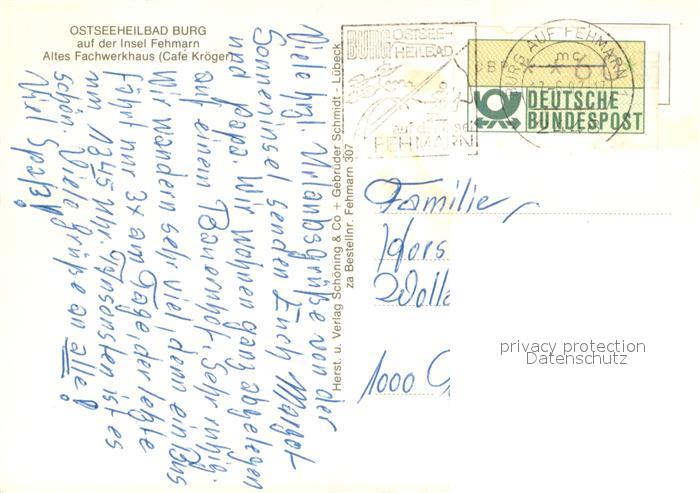 OSTSEEHEILBAD BURG
auf der Insel Fehmarn
Altes Fachwerkhaus (Café Kröger)
Viele hrzl. Urlaubsgrüße von der
Sonneninsel senden Euch Margot
und Papa. Wir wohnen ganz abgelegen
auf einem Bauernhof. Sehr ruhig.
Wir wandern sehr viel, denn ein Bus
fährt nur 3x am Tage, der letzte
um 1345 Uhr. Ansonsten ist es
schön. Viele Grüße an alle!
Viel Spaß!
Herst. u. Verlag Schöning & Co + Gebrüder Schmidt - Lübeck
za Bestellnr. Fehmarn 307
BURG OSTSEE-
HEILBAD
auf
FEHMARN
BURG AUF FEHMARN
mc
DBP
DEUTSCHE
BUNDESPOST
Familie
1000
privacy protection
Datenschutz